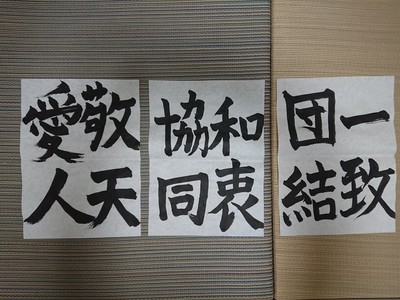 一致
団結
和衷
協同
敬天
愛人